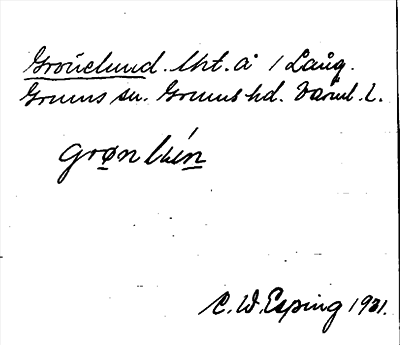 Grönelund. lht. å 1 Lång.
Grums sn. Grums hd. Värml. l.
grøn lu̇n
C. W. Esping 1921.